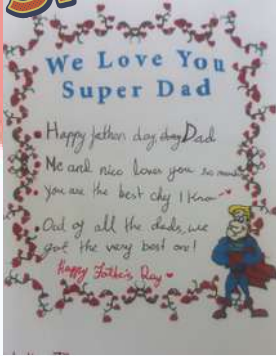 We Love You
Super Dad
Happy fathers day, day Dad
Me and nico loves you so much
you are the best chy I know
Out of all the dads, we
got the very best one!
Happy Father's Day